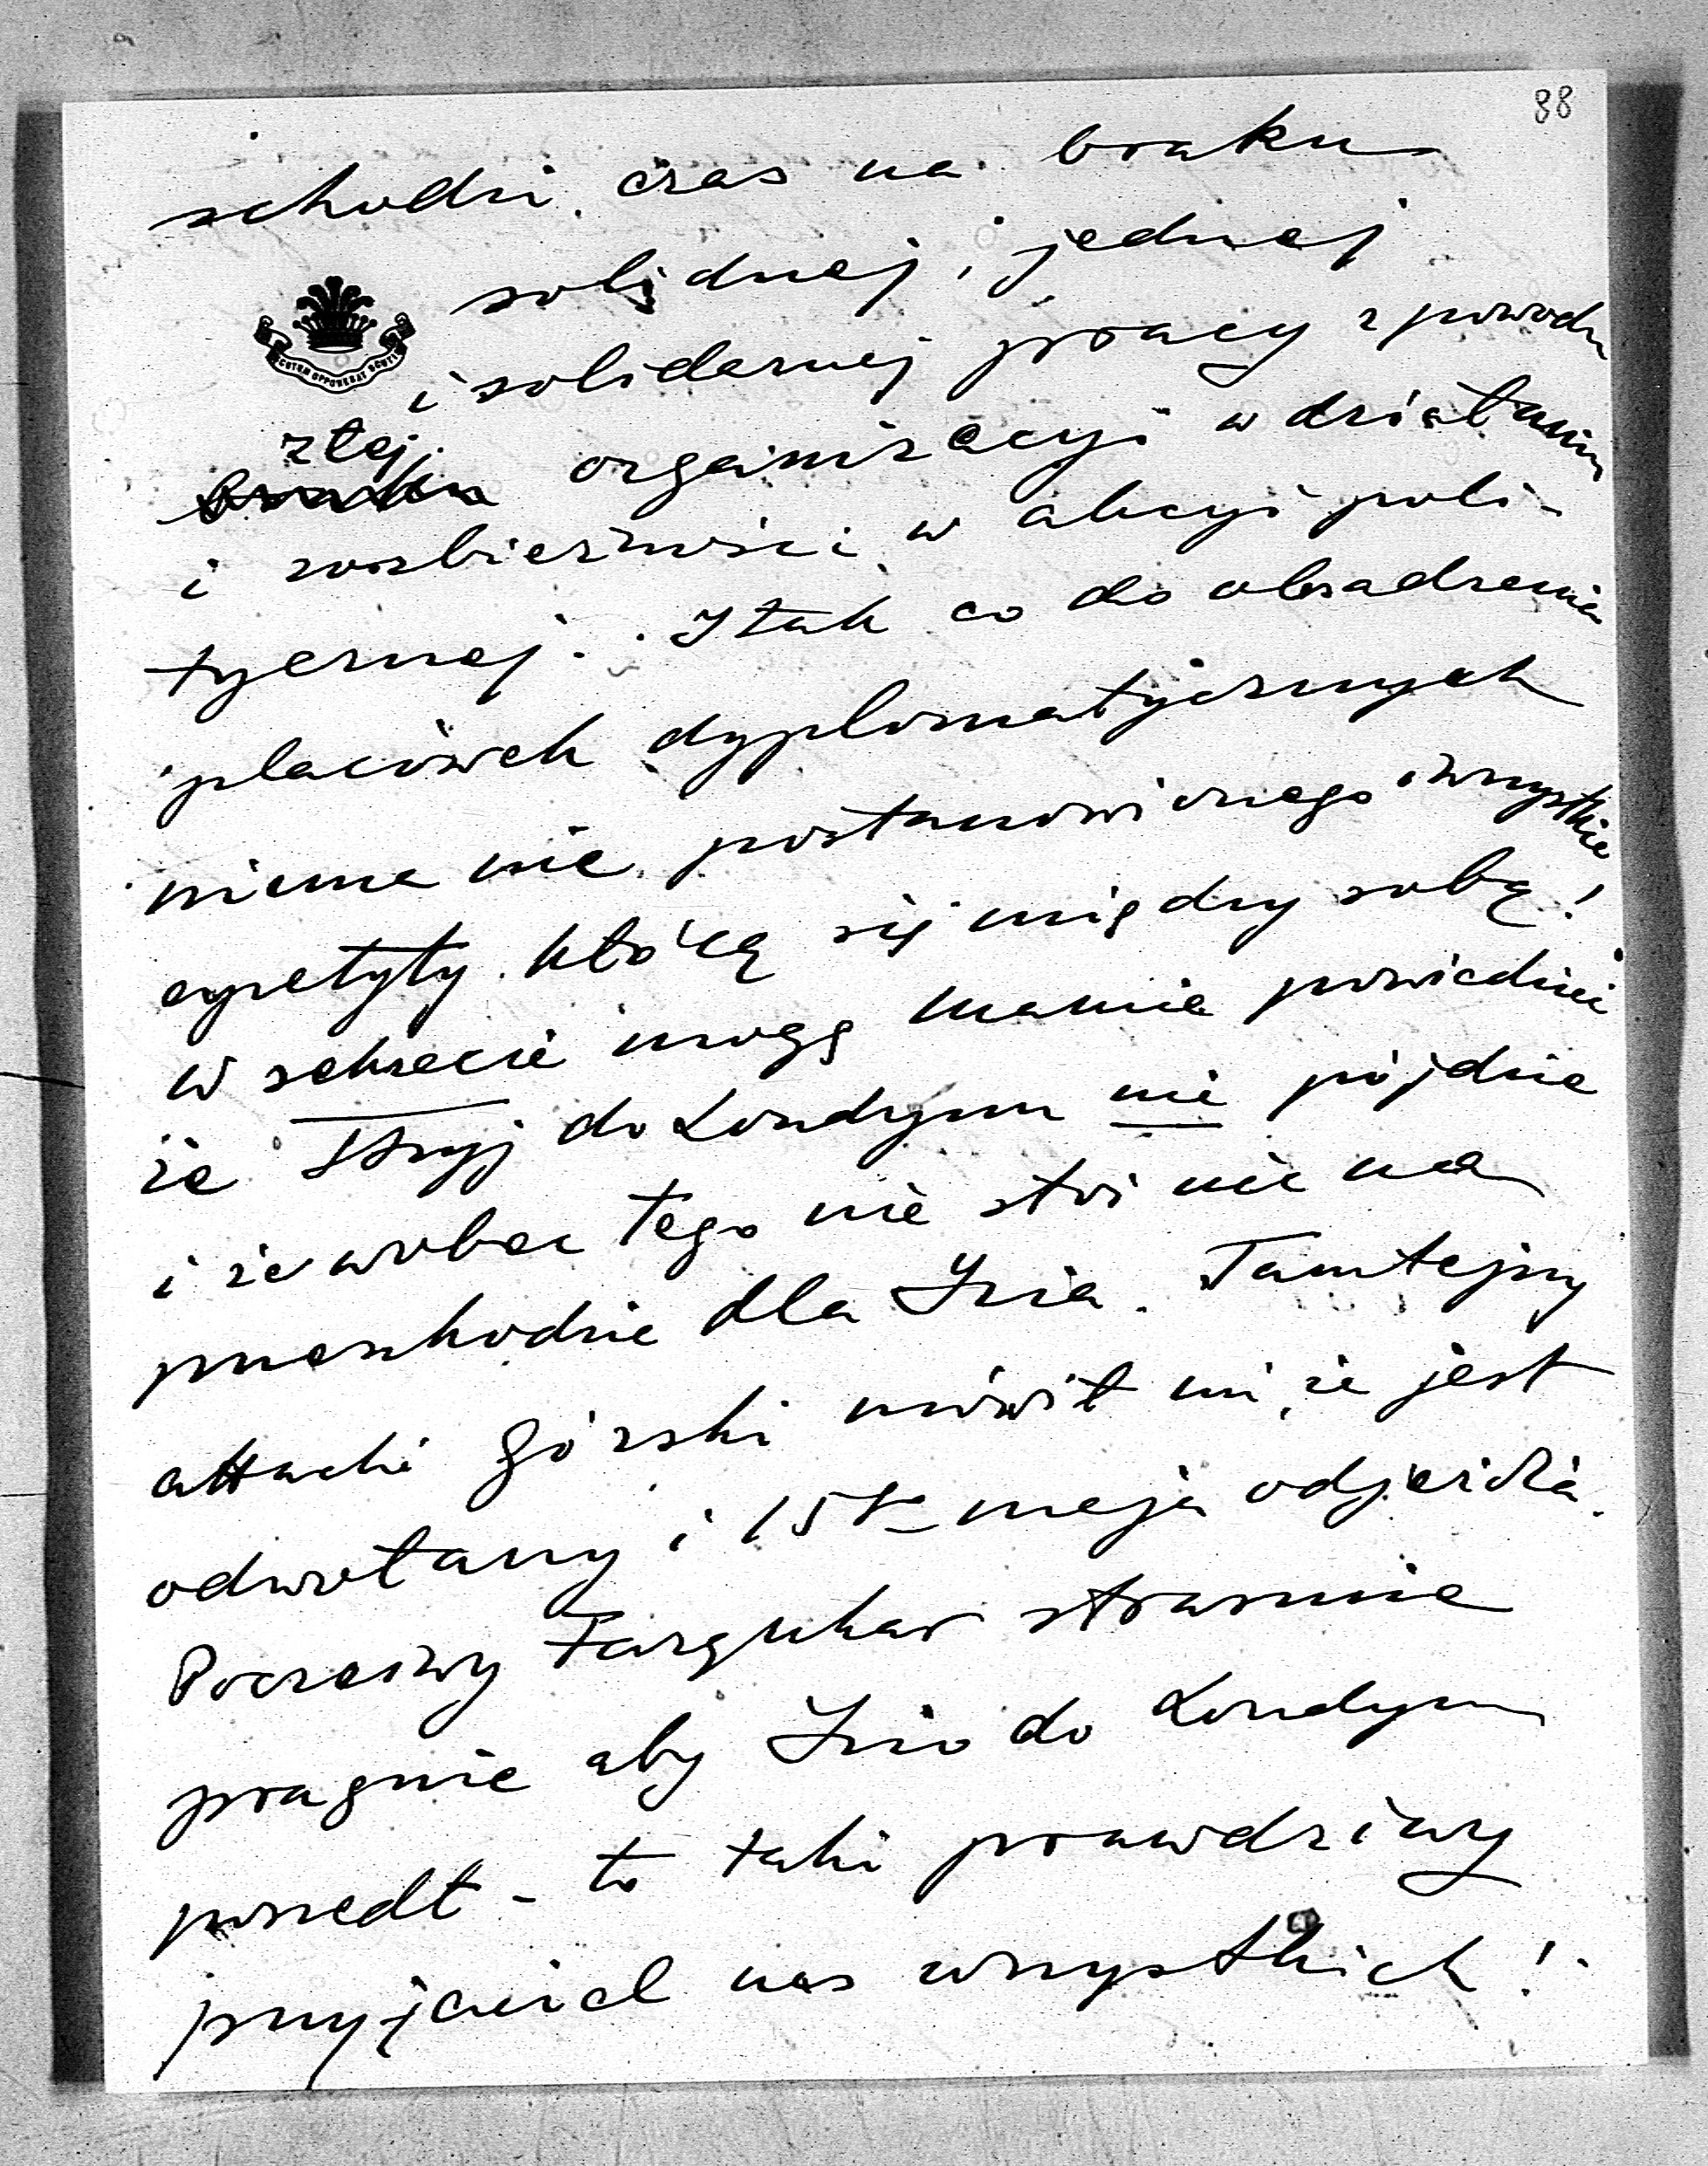 88
schodzi czas na braku
solidnej, jednej
SCUTUM OPPONEBAT SCUTIS
i solidarnej pracy z powodu
złej
braku organizacyi w działaniu
i rozbieżności w akcyi poli-
tycznej. I tak co do obsadzenia
placówek dyplomatycznych
niema nic postanowionego i wszystkie
apetyty kłócą się między sobą!
W sekrecie mogę Mamie powiedzieć
że Stryj do Londynu nie pójdzie
i że wobec tego nie stoi nic na
przeszkodzie dla Izia. Tamtejszy
attaché Górski mówił mi, że jest
odwołany i 15go maja odjeżdża.
Poczciwy Farquhar strasznie
pragnie aby Izio do Londynu
poszedł - to taki prawdziwy
przyjaciel nas wszystkich!